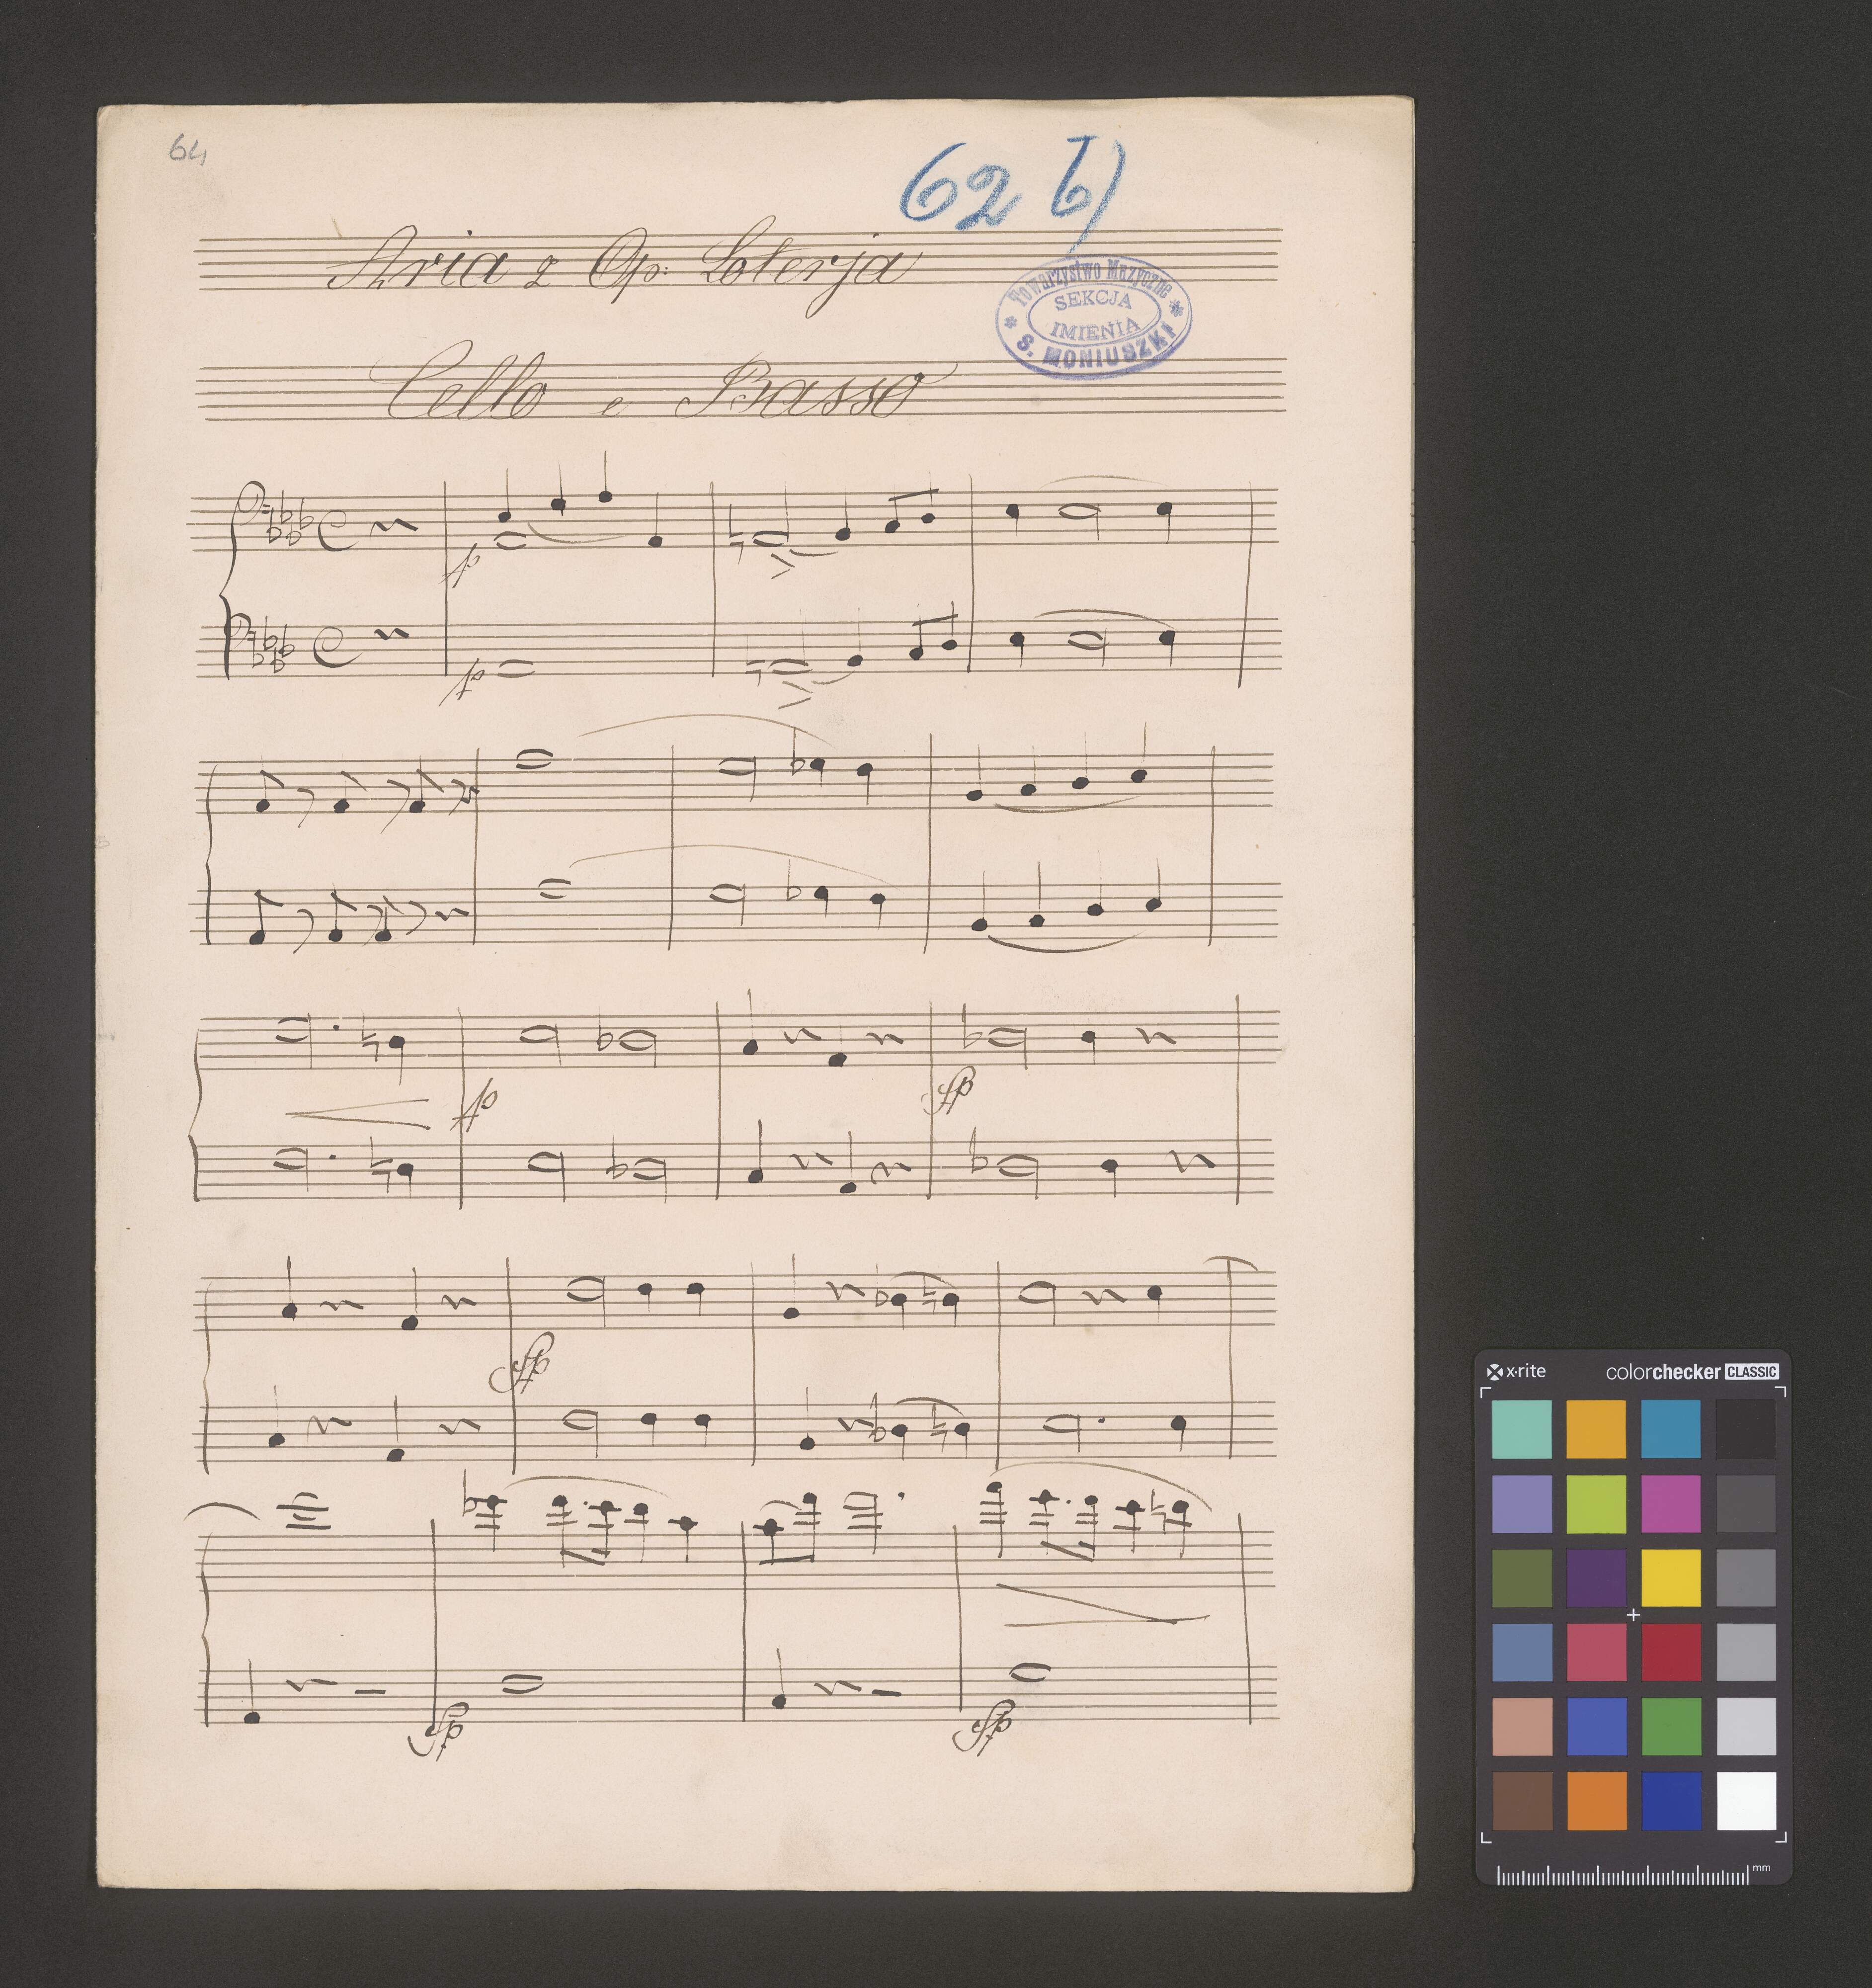 64
62 b)
Aria z Op: Loterja
Towarzystwo Muzyczne
SEKCJA
IMIENIA
S. MONIUSZKI
Cello e Basso
p
p
p
fp
fp
fp
fp
x-rite colorchecker CLASSIC
mm